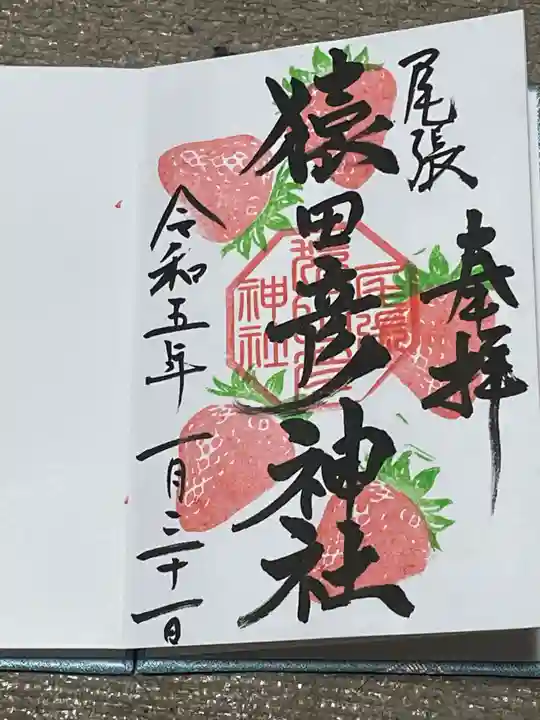 奉拝
尾張
猿田彦神社
尾張
猿田彦
神社
令和五年一月三十一日